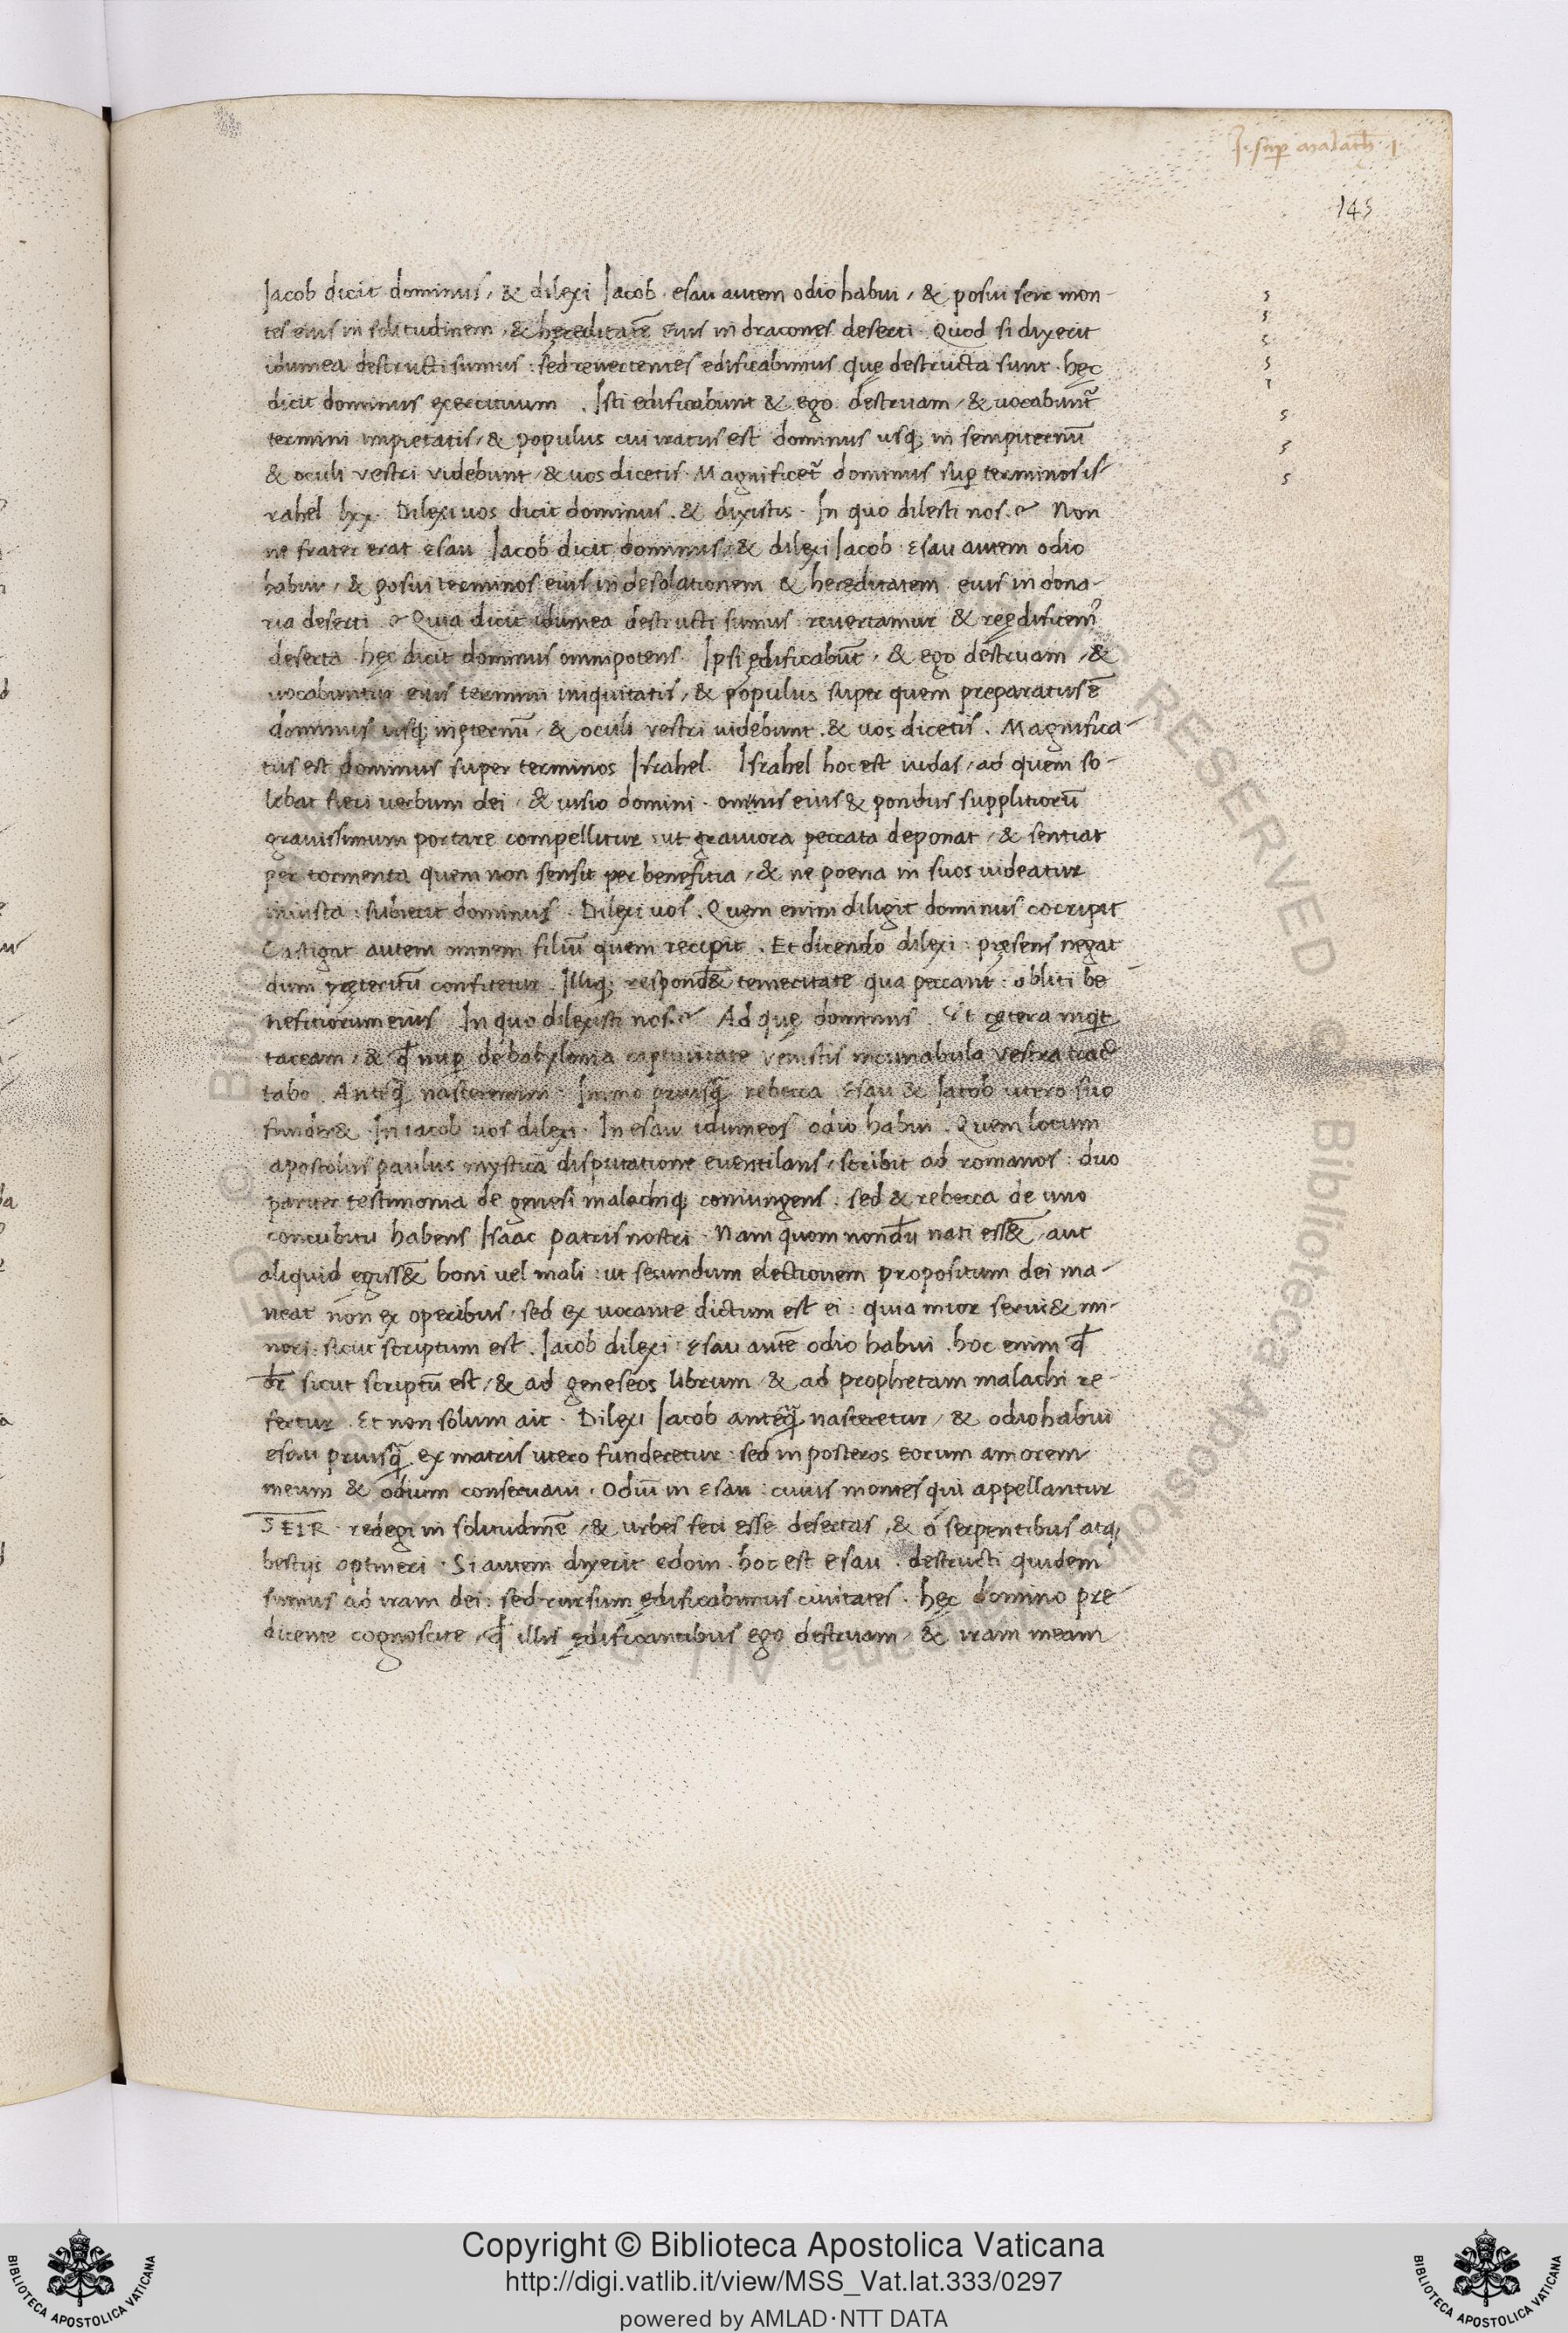 Jo. sup malach. 1
145
Iacob dicit dominus, & dilexi Iacob. esau autem odio habui, & posui seir mon-
tes eius in solitudinem, & hęreditatē eius in dracones deserti. Quod si dixerit
idumea destructi sumus: sed revertentes edificabimus quę destructa sunt. hęc
dicit dominus exercituum. Isti edificabunt & ego destruam, & uocabunt̃
termini impietatis, & populus cui iratus est dominus usq; in sempiternū
& oculi vestri videbunt, & uos dicetis. Magnificet̃ dominus sup̱ terminos is-
rahel. lxx. Dilexi uos dicit dominus. & dixistis. In quo dilesti nos? Non
ne frater erat esau Iacob dicit dominus, & dilexi Iacob. Esau autem odio
habui, & posui terminos eius in desolationem & hereditatem eius in dona-
ria deserti. Quia dicit idumea destructi sumus: revertamur & reędificem̃
deserta. hęc dicit dominus omnipotens. Ipsi ędificabūt, & ego destruam, &
uocabuntur eius termini iniquitatis, & populus super quem preparatus ē
dominus usq; in ęternū, & oculi vestri uidebunt. & uos dicetis. Magnifica-
tus est dominus super terminos Israhel. Israhel hoc est iudas, ad quem so-
lebat fieri uerbum dei, & uisio domini. onus eius & pondus supplitiorū
grauissimum portare compellitur: ut grauiora peccata deponat, & sentiat
per tormenta quem non sensit per benefitia, & ne poena in suos uideatur
iniusta: subiecit dominus. Dilexi uos. Quem enim diligit dominus corripit
Castigat autem omnem filiū quem recipit. Et dicendo dilexi: pręsens negat
dum pręteritū confitetur. Illiq; respond& temeritate qua peccant: obliti be-
nefitiorum eius In quo dilexisti nos? Ad quę dominus. Ut cętera inqt
taceam, & qđ nup̱ de babylonia captivitate venistis incunabula vestra trac-
tabo. Anteq̃ nasceremini: Immo priusq̃ rebecca Esau & Iacob utero suo
funder&. In iacob uos dilexi. In esau idumeos odio habui. Quem locum
apostolus paulus mystica disputatione euentilans, scribit ad romanos: duo
pariter testimonia de genesi malachiq; coniungens: sed & rebecca de uno
concubitu habens Isaac patris nostri. Nam quom nondū nati ess& aut
aliquid egiss& boni uel mali: ut secundum electionem propositum dei ma-
neat non ex operibus, sed ex uocante dictum est ei: quia maior serui& mi-
nori: sicut scriptum est. Iacob dilexi: Esau autē odio habui. hoc enim qđ
dr̄ sicut scriptū est, & ad geneseos librum & ad prophetam malachi re-
fertur. Et non solum ait. Dilexi Iacob anteq̃ nasceretur, & odio habui
esau priusq̃ ex matris utero funderetur: sed in posteros eorum amorem
meum & odium conseruaui. Odiū in Esau: cuius montes qui appellantur
SEIR redegi in solitudinē, & urbes feci esse desertas, & a serpentibus atq;
bestijs optineri. Si autem dixerit edom. hoc est esau. destructi quidem
sumus ad iram dei: sed rursum ędificabimus ciuitates. hęc domino pre-
dicente cognoscite, qđ illis ędificantibus ego destruam, & iram meam
Copyright © Biblioteca Apostolica Vaticana
http://digi.vatlib.it/view/MSS_Vat.lat.333/0297
powered by AMLAD·NTT DATA